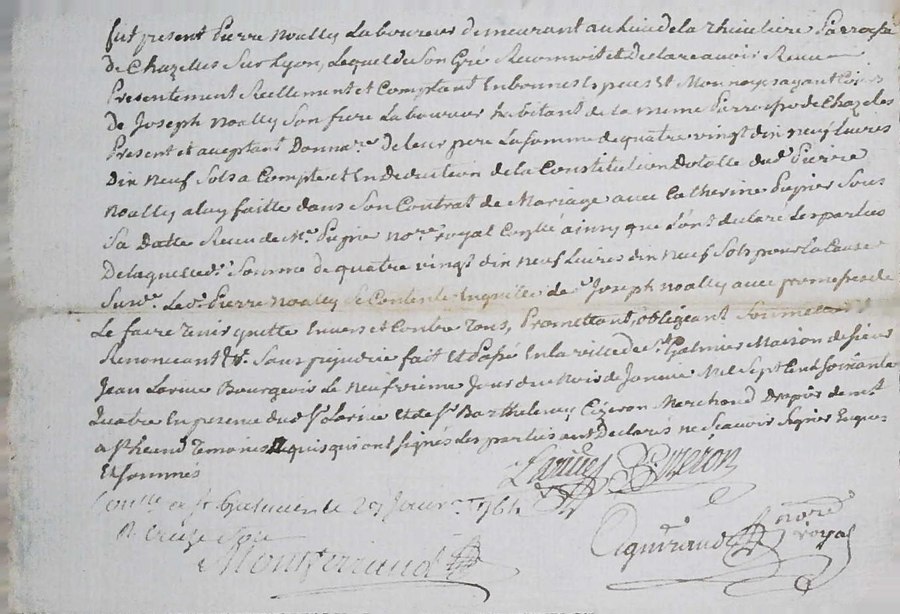 fut present Pierre Noally Laboureur demeurant au lieu de la Parroisse
de Chazelles Sur Lyon, Lequel de Son Gré Reconnoit et Declare avoir Receu
Presentement Reellement et Comptant En bonnes Especes Et Monnoye ayant Cours
de Joseph Noally Son frere Laboureur habitant de la meme Parroisse de Chazelles
Present et aceptant Donnare. De leur pere La Somme de quatre vingt dix neuf Livres
Dix Neuf Sols a Compte et En Deduction de la Constitution Dotalle dud. Pierre
Noally a luy faitte dans Son Contrat de Mariage avec Catherine Pupier Sous
Sa Datte Receu de Me. nore. royal ainsy que L'ont declaré Les parties
De laquelle d. Somme de quatre vingt dix neuf Livres dix neuf Sols pour la Cause
Sus de. Led. Pierre Noally Se Contente En quitte led. Joseph Noally avec promesse de
Le faire Tenir quitte Envers et Contre Tous, Promettant, obligeant Soumettant
Renonceant &a. Sans prejudice fait Et Passé En la ville de St. Galmier Maison de Sieur
Jean Larue Bourgeois Le Neufvieme Jour du Mois de Janvier Mil Sept Cent Soixante
Quatre En presence dud. Sr. Larue Et de Sr. Barthelemy Cizeron Marchand
a Temoins qui ont Signés Les parties ont Declarés ne Scavoir Signer Enquis
Et Sommés
Larue Cizeron
a St. Galmier le 1764
R. treize Sols
Montferrand
nore
royal